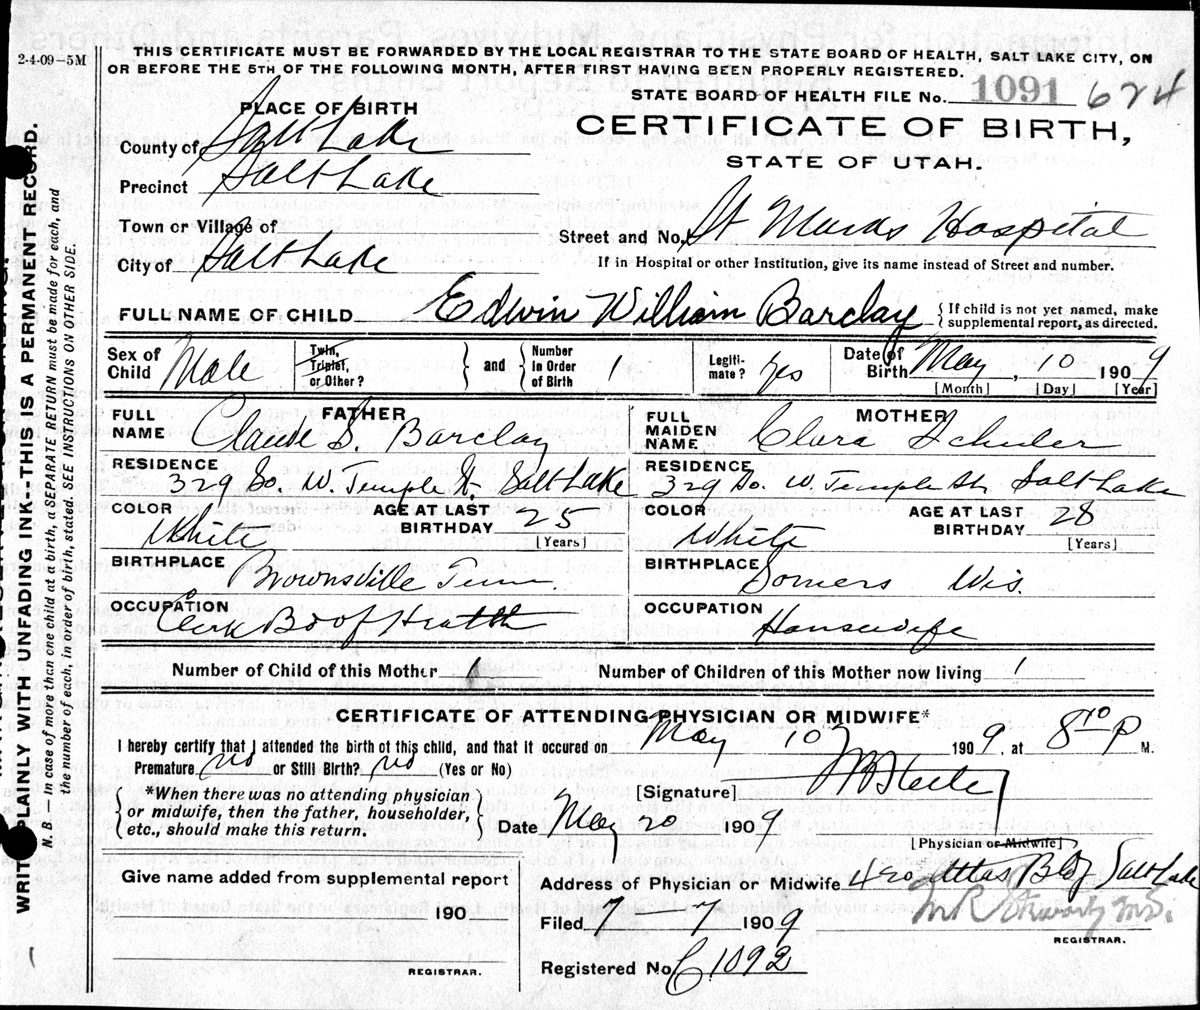 2-4-09-5M
THIS CERTIFICATE MUST BE FORWARDED BY THE LOCAL REGISTRAR TO THE STATE BOARD OF HEALTH, SALT LAKE CITY, ON
OR BEFORE THE 5TH OF THE FOLLOWING MONTH, AFTER FIRST HAVING BEEN PROPERLY REGISTERED.
STATE BOARD OF HEALTH FILE No. 1091 624
PLACE OF BIRTH
CERTIFICATE OF BIRTH,
STATE OF UTAH.
County of Salt Lake
Precinct Salt Lake
Town or Village of
City of Salt Lake
Street and No. St Marks Hospital
If in Hospital or other Institution, give its name instead of Street and number.
FULL NAME OF CHILD Edwin William Barclay {If child is not yet named, make supplemental report, as directed.
Sex of Child Male Twin, Triplet, or Other? } and { Number In Order of Birth 1 Legitimate? Yes Date of Birth May, 10 1909
[Month] [Day] [Year]
FATHER
FULL NAME Claude S. Barclay
RESIDENCE 329 So. W. Temple St. Salt Lake
COLOR White AGE AT LAST BIRTHDAY 25
[Years]
BIRTHPLACE Brownsville Tenn.
OCCUPATION Clerk Bd of Health
MOTHER
FULL MAIDEN NAME Clara Schuler
RESIDENCE 329 So. W. Temple St. Salt Lake
COLOR White AGE AT LAST BIRTHDAY 28
[Years]
BIRTHPLACE Somers Wis.
OCCUPATION Housewife
Number of Child of this Mother 1 Number of Children of this Mother now living 1
CERTIFICATE OF ATTENDING PHYSICIAN OR MIDWIFE*
I hereby certify that I attended the birth of this child, and that it occured on May 10 1909, at 8 10 P M.
Premature no or Still Birth? no (Yes or No)
[Signature]
{*When there was no attending physician
or midwife, then the father, householder,
etc., should make this return.}
Date May 20 1909
[Physician or Midwife]
Give name added from supplemental report
190
REGISTRAR.
Address of Physician or Midwife 420 Atlas Bldg Salt Lake
Filed 7-7 1909
M.D.
REGISTRAR.
Registered No. C 1092
WRITE PLAINLY WITH UNFADING INK---THIS IS A PERMANENT RECORD.
N. B.—In case of more than one child at a birth, a SEPARATE RETURN must be made for each, and
the number of each, in order of birth, stated. SEE INSTRUCTIONS ON OTHER SIDE.